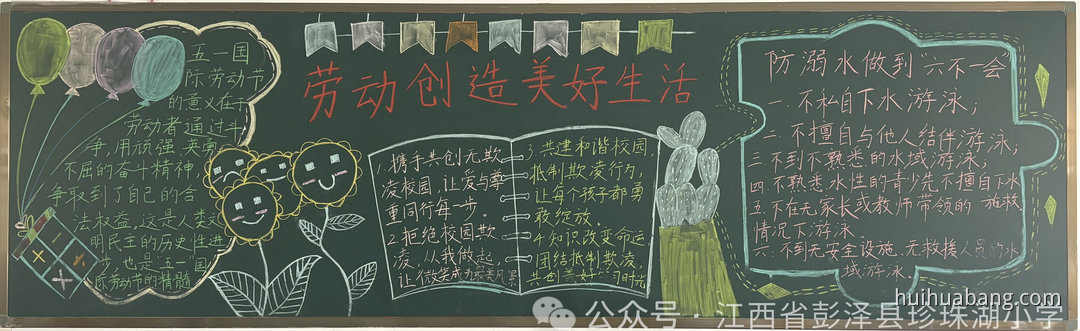 劳动创造美好生活
五一国
际劳动节
的意义在于
劳动者通过斗
争，用顽强 英勇
不屈的奋斗精神，
争取到了自己的合
法权益，这是人类文
明民主的历史性进
步，也是"五一"国
际劳动节的精髓
1.携手共创无欺
凌校园，让爱与尊
重同行每一步。
2.拒绝校园欺
凌，从我做起，
让微笑成为最美风景
3.共建和谐校园，
抵制欺凌行为，
让每个孩子都勇
敢绽放。
4.知识改变命运，
团结抵制欺凌，
共创美好时光
防溺水做到"六不一会"
一.不私自下水游泳；
二.不擅自与他人结伴游泳；
三.不到不熟悉的水域游泳；
四.不熟悉水性的青少先不擅自下水
五.不在无家长或教师带领的 施救
情况下游泳.
六.不到无安全设施.无救援人员的水
域游泳.
公众号·江西省彭泽县珍珠湖小学
huihuabang.com